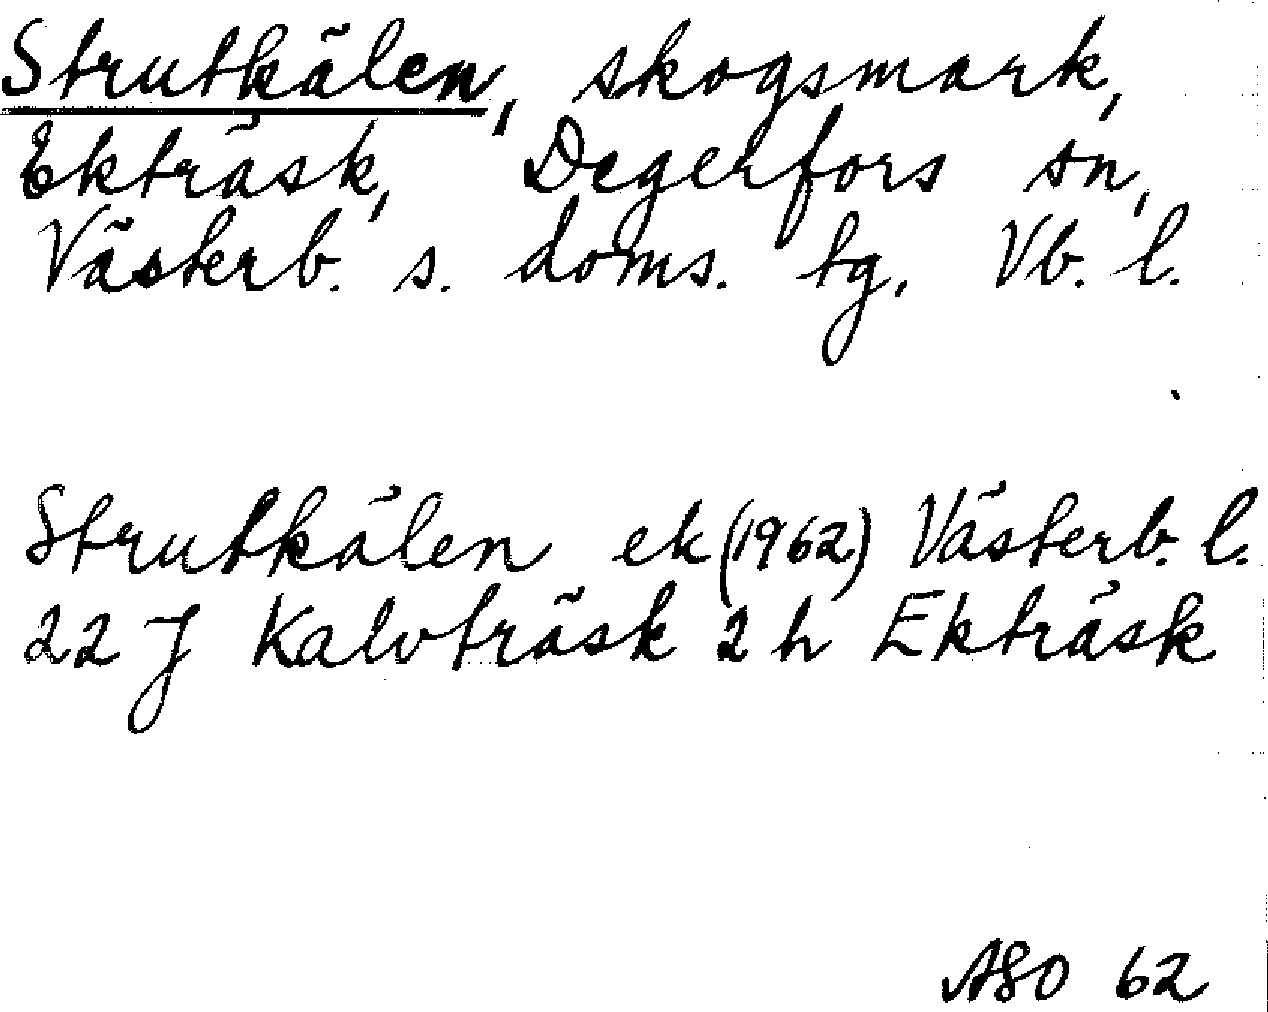 Strutkälen, skogsmark,
Ekträsk, Degerfors sn,
Västerb. s. doms. tg, Vb. l.
Strutkälen ek (1962) Västerb. l.
22 J Kalvträsk 2 h Ekträsk
ASO 62